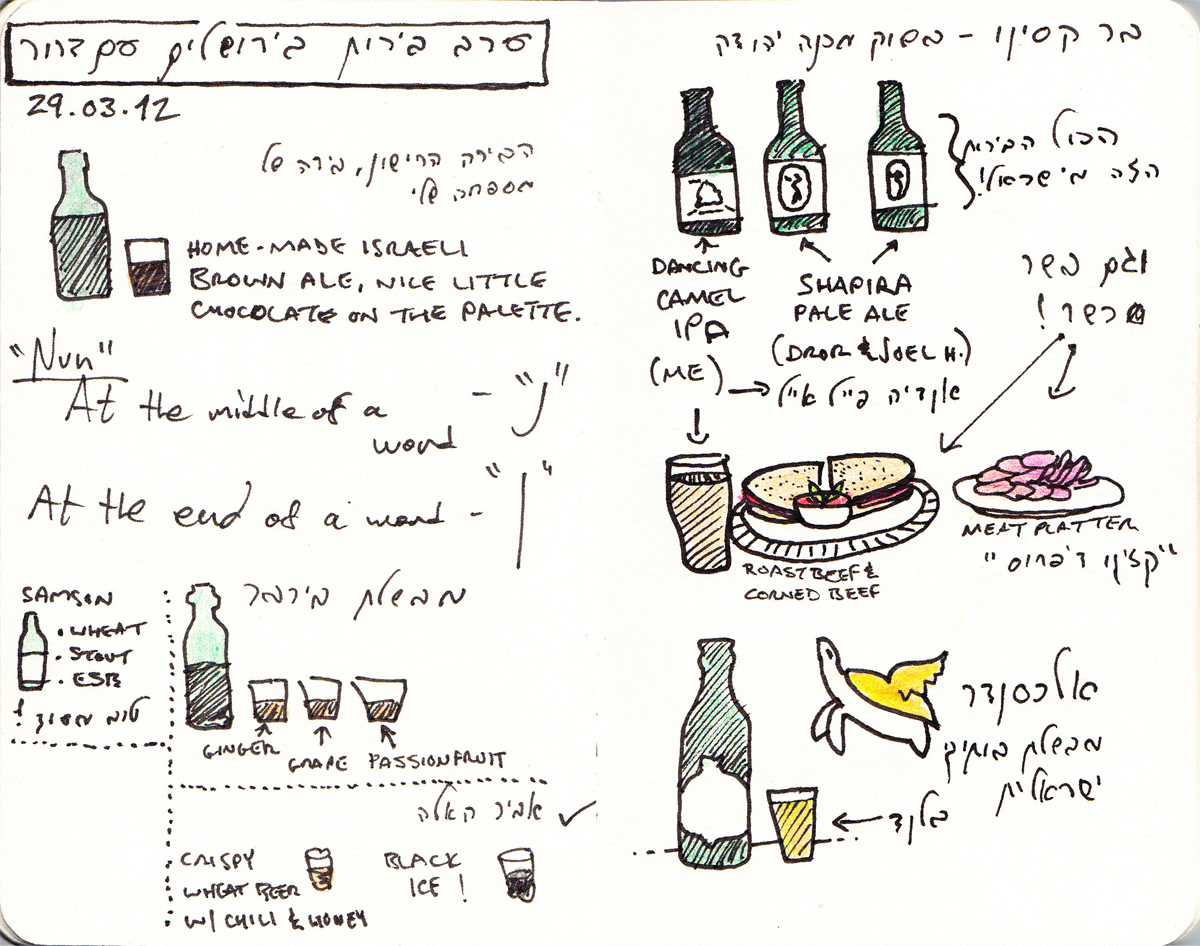 ערב בירות בירושלים עם דרור
29.03.12
הבירה הרישון, בירה של
מספחה שלי
HOME-MADE ISRAELI
BROWN ALE, NICE LITTLE
CHOCOLATE ON THE PALETTE.
"Nun"
At the middle of a
word
- "נ"
At the end of a word - "ן"
SAMSON
• WHEAT
• STOUT
• ESB
טוב מאוד!
מבשלת בירמר
GINGER
GRAPE
PASSIONFRUIT
אמיר האלה ✓
CRISPY
WHEAT BEER
W/ CHILI & HONEY
BLACK
ICE!
בר קסינו - בשוק מכנה יהודה
הכול הבירות
הזה מישראל!
DANCING
CAMEL
IPA
(ME)
SHAPIRA
PALE ALE
(DROR & JOEL H.)
אנדיה פייל אייל
וגם בשר
כשר!
ROAST BEEF &
CORNED BEEF
MEAT PLATTER
"קצ'נו ד'פרוס"
אלכסנדר
מבשלת בוטיק
ישראלית
בלונד